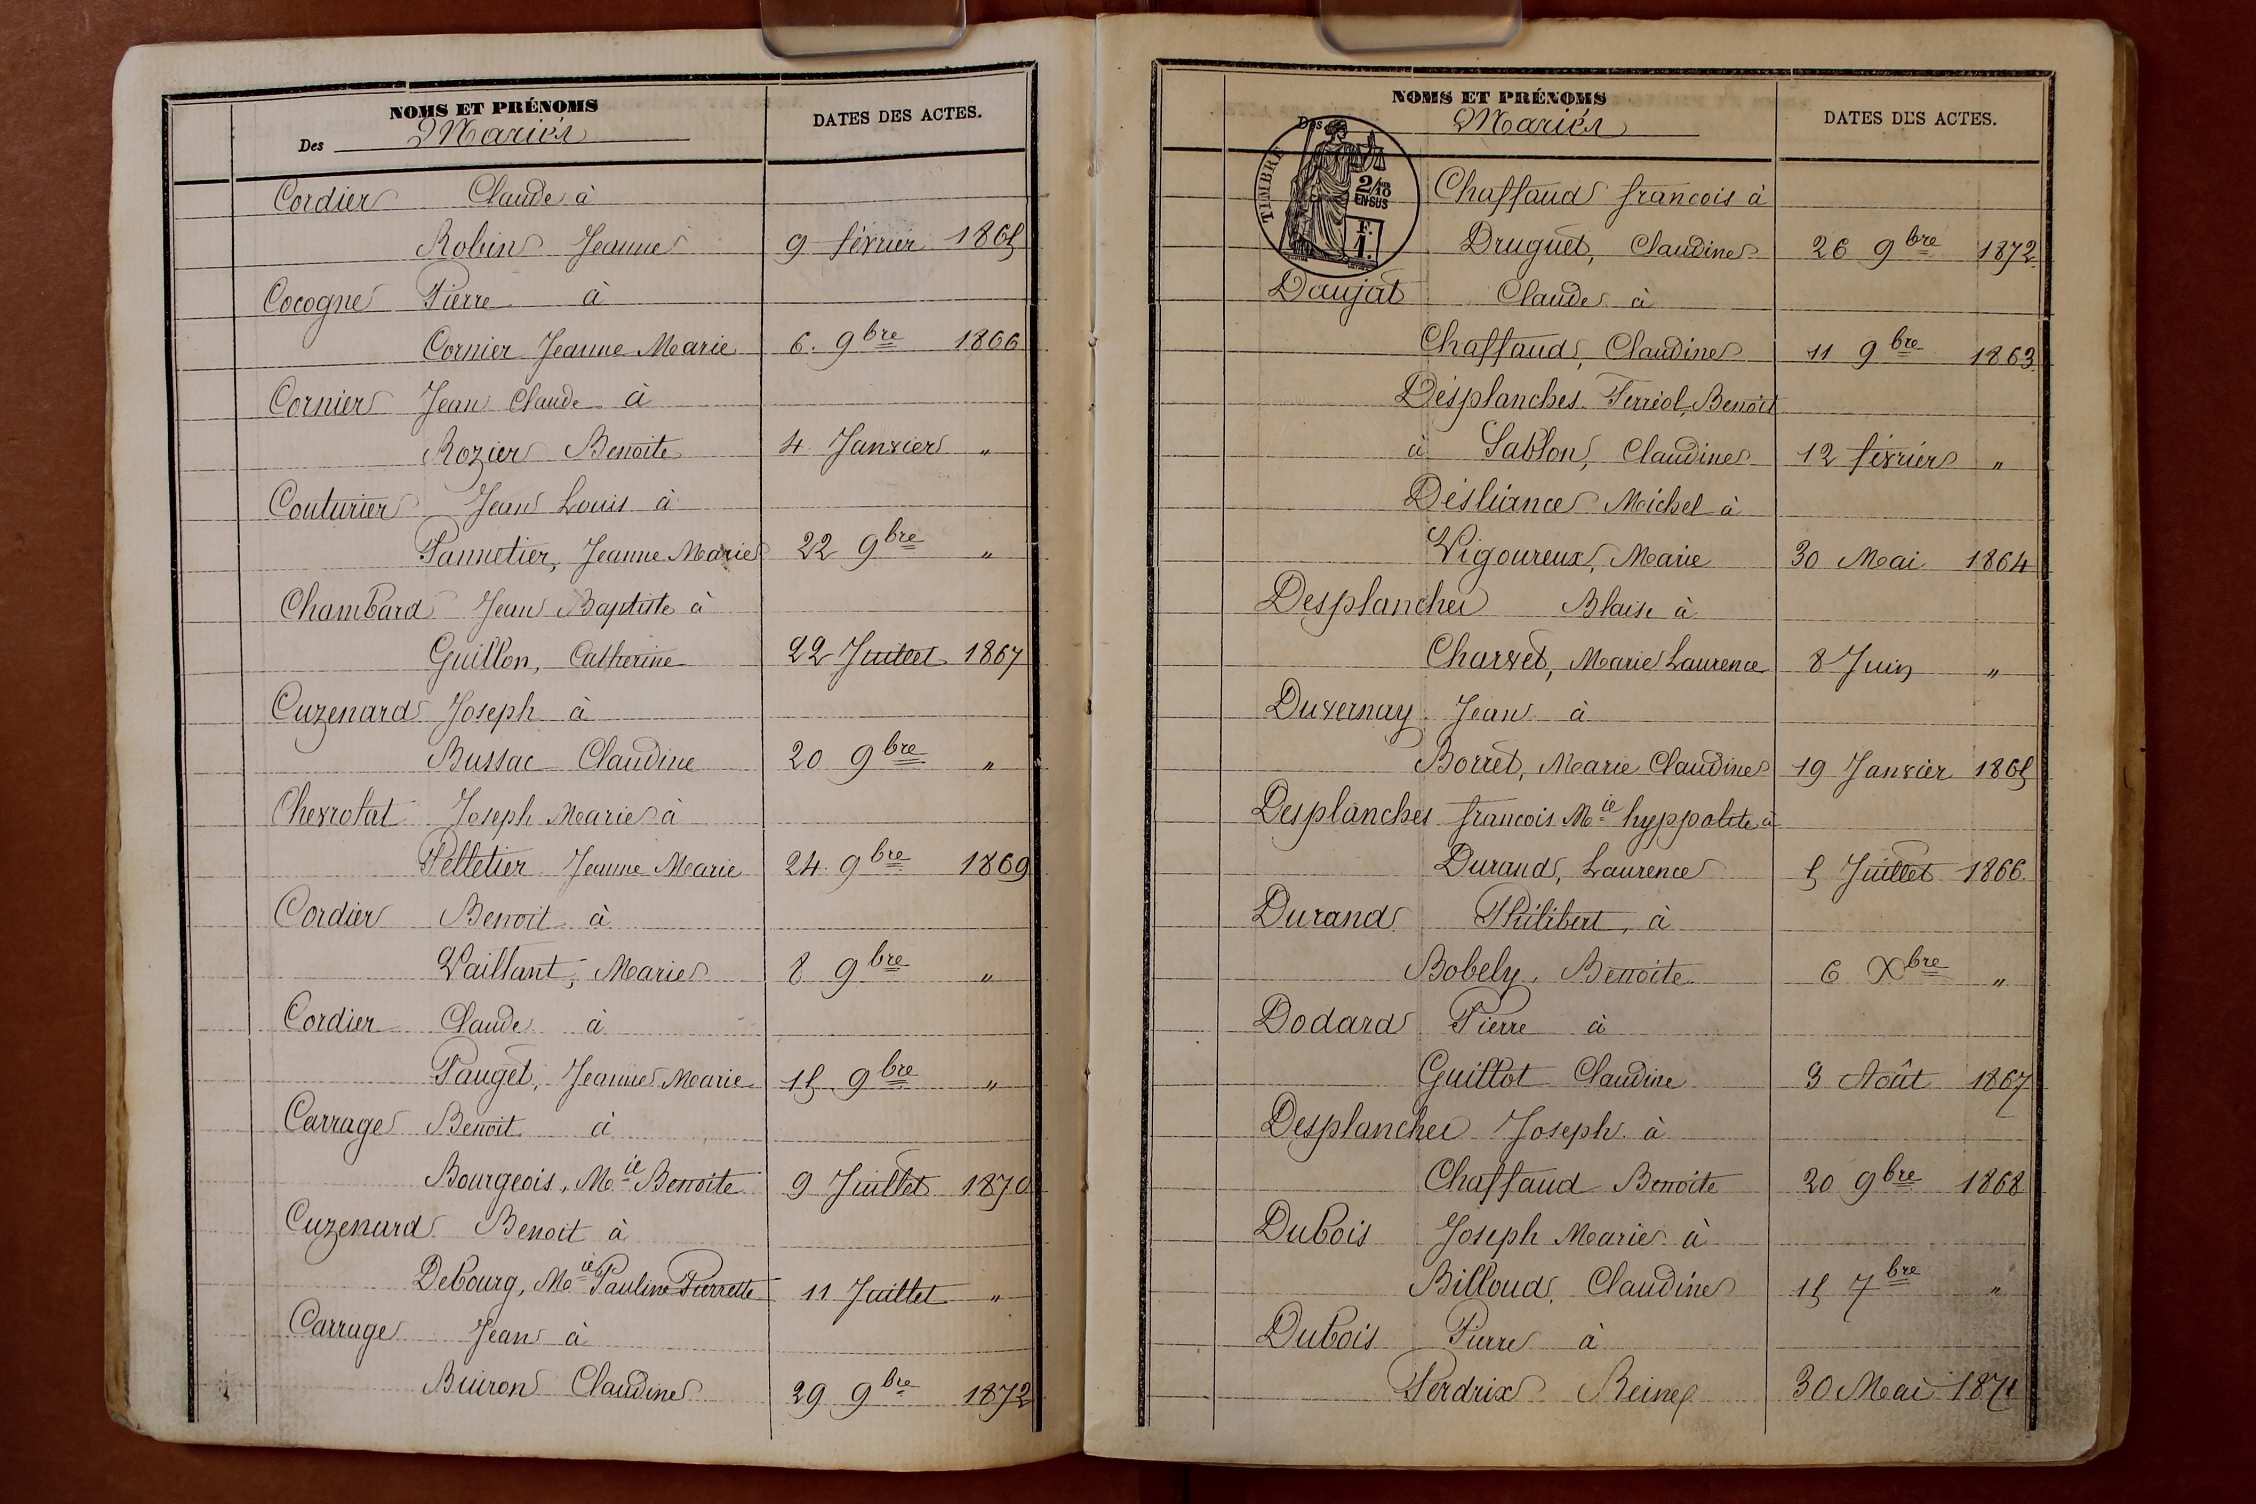 NOMS ET PRÉNOMS
Des Mariés
DATES DES ACTES.
Cordier Claude à
Robin Jeanne 9 février 1865
Cocogne Pierre à
Cornier Jeanne Marie 6. 9bre 1866
Cornier Jean Claude à
Rozier Benoite 4 Janvier "
Couturier Jean Louis à
Pannetier, Jeanne Marie 22 9bre "
Chambard Jean Baptiste à
Guillon, Catherine 22 Juillet 1867
Cuzenard Joseph à
Bussac Claudine 20 9bre "
Chevrolat Joseph Marie à
Pelletier Jeanne Marie 24 9bre 1869
Cordier Benoit à
Vaillant, Marie 8 9bre "
Cordier Claude à
Pauget, Jeanne Marie 15 9bre "
Carrage Benoit à
Bourgeois, Mie Benoite 9 Juillet 1870
Cuzenard Benoit à
Debourg, Mie Pauline Pierrette 11 Juillet "
Carrage Jean à
Buiron Claudine 29 9bre 1872
NOMS ET PRÉNOMS
Des Mariés
DATES DES ACTES.
TIMBRE
2/10
EN SUS
F.
1.
Chaffaud francois à
Druguet, Claudine 26 9bre 1872
Daujat Claude à
Chaffaud, Claudine 11 9bre 1863
Desplanches Ferréol, Benoit
à Sablon, Claudine 12 février "
Desliance Michel à
Vigoureux, Marie 30 Mai 1864
Desplanches Blaise à
Charvet, Marie Laurence 8 Juin "
Duvernay Jean à
Borret, Marie Claudine 19 Janvier 1865
Desplanches francois Mie hyppolite à
Durand, Laurence 5 Juillet 1866
Durand Philibert, à
Bobely, Benoite 6 Xbre "
Dodard Pierre à
Guillot Claudine 3 Août 1867
Desplanches Joseph à
Chaffaud Benoite 20 9bre 1868
Dubois Joseph Marie à
Billoud, Claudine 15 7bre "
Dubois Pierre à
Perdrix Reine 30 Mai 1871